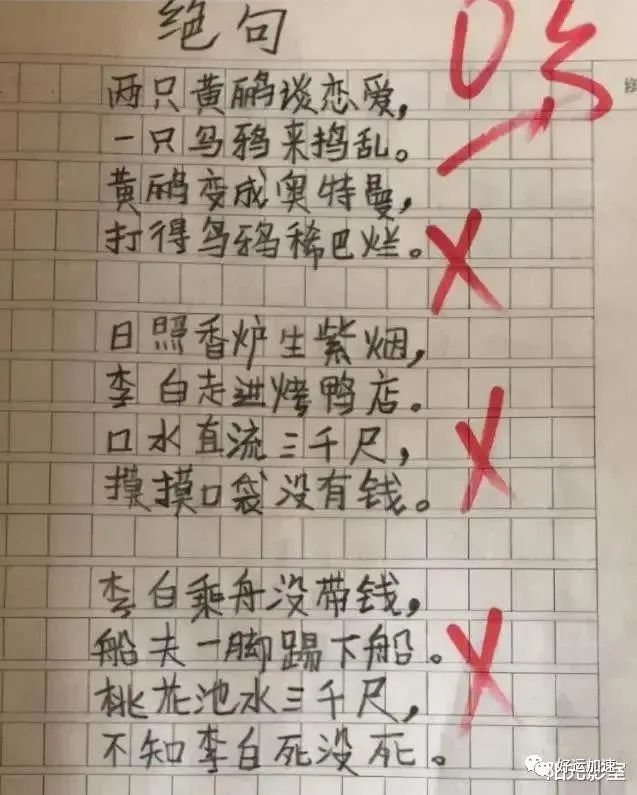 绝句
0分
两只黄鹂谈恋爱,
一只乌鸦来捣乱。
黄鹂变成奥特曼,
打得乌鸦稀巴烂。
日照香炉生紫烟,
李白走进烤鸭店。
口水直流三千尺,
摸摸口袋没有钱。
李白乘舟没带钱,
船夫一脚踢下船。
桃花池水三千尺,
不知李白死没死。
好运加速